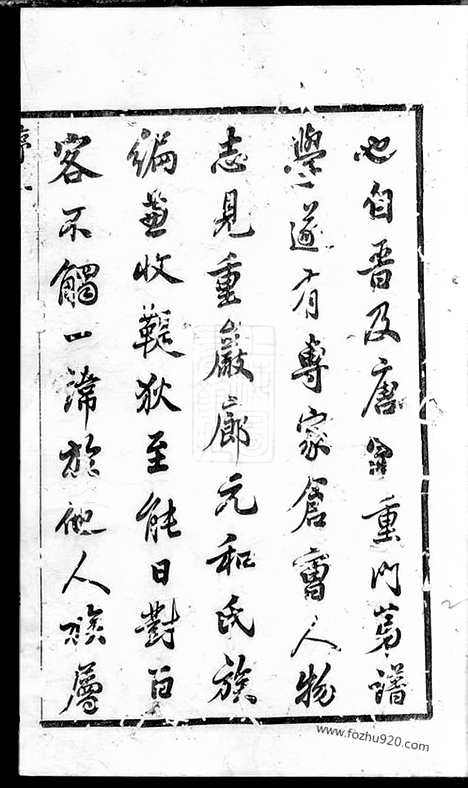 也自晉及唐室重門第譜
學遂有專家倉曹人物
志見重嚴廊元和氏族
編兼收鞮狄至能日對百
客不觸一諱於他人族層
www.fozhu920.com